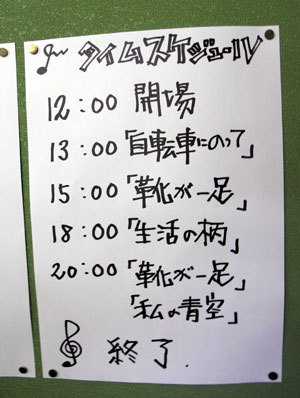 タイムスケジュール
12:00 開場
13:00「自転車にのって」
15:00「靴が一足」
18:00「生活の柄」
20:00「靴が一足」
「私の青空」
終了.